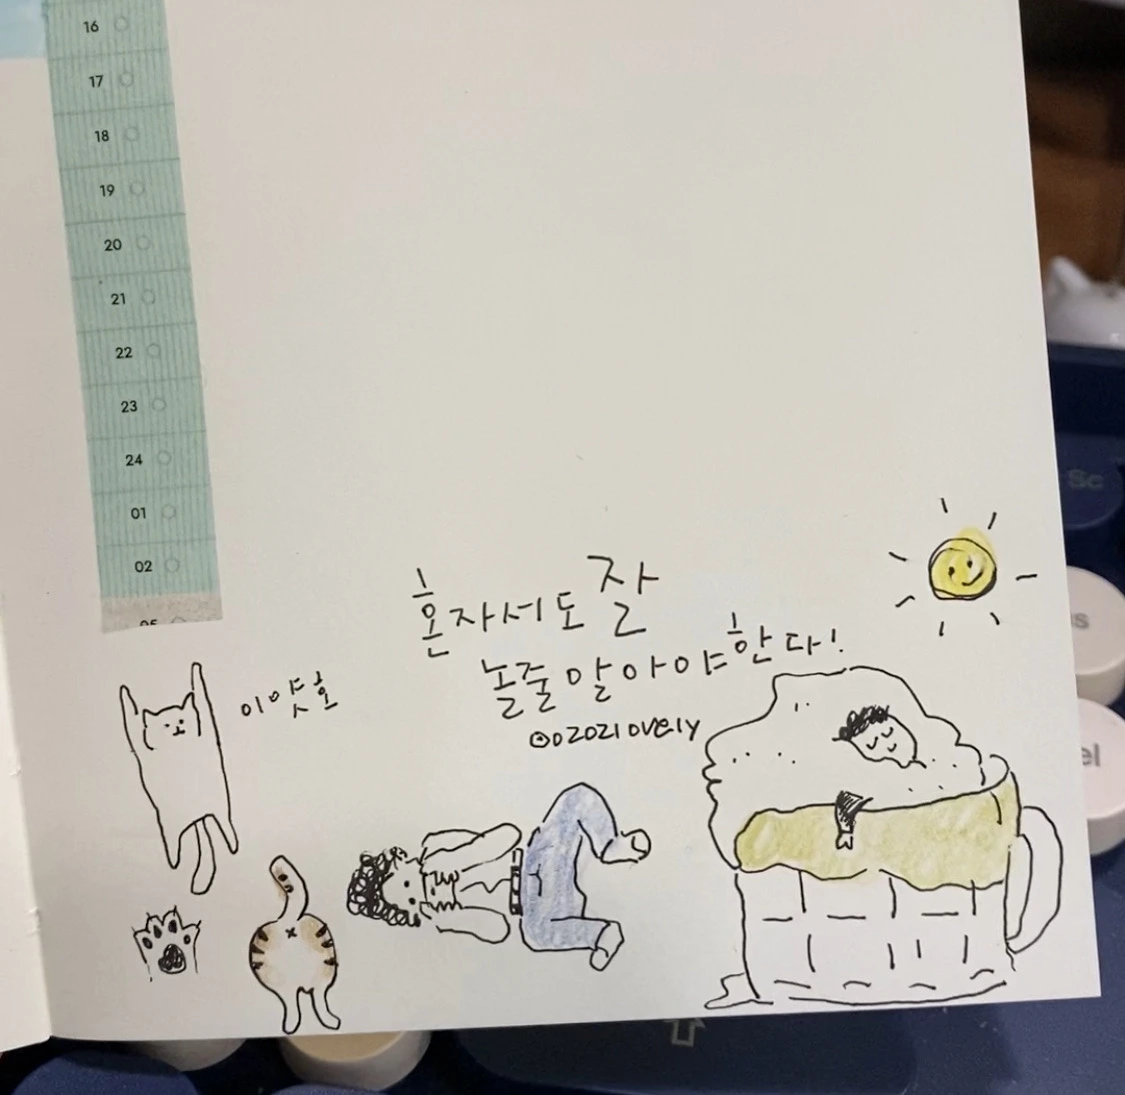 16
17
18
19
20
21
22
23
24
01
02
혼자서도 잘
놀줄 알아야 한다!
이얏호